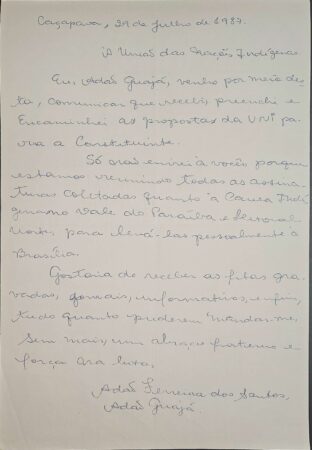 Caçapava, 29 de Julho de 1987.
À União das Nações Indígenas
Eu, Adão Guajá, venho por meio des
ta, comunicar que recebi, preenchi e
Encaminhei as propostas da UNI pa
ra a Constituinte.
Só não enviei à vocês porque
estamos reunindo todas as assina
turas coletadas quanto à Causa Indí
gena no Vale do Paraíba e Litoral
Norte, para levá-las pessoalmente à
Brasília.
Gostaria de receber as fitas gra
vadas, jornais, informativos, enfim,
tudo quanto puderem mandar-me,
Sem mais, um abraço fraterno e
força pra luta,
Adão Ferreira dos Santos,
Adão Guajá.